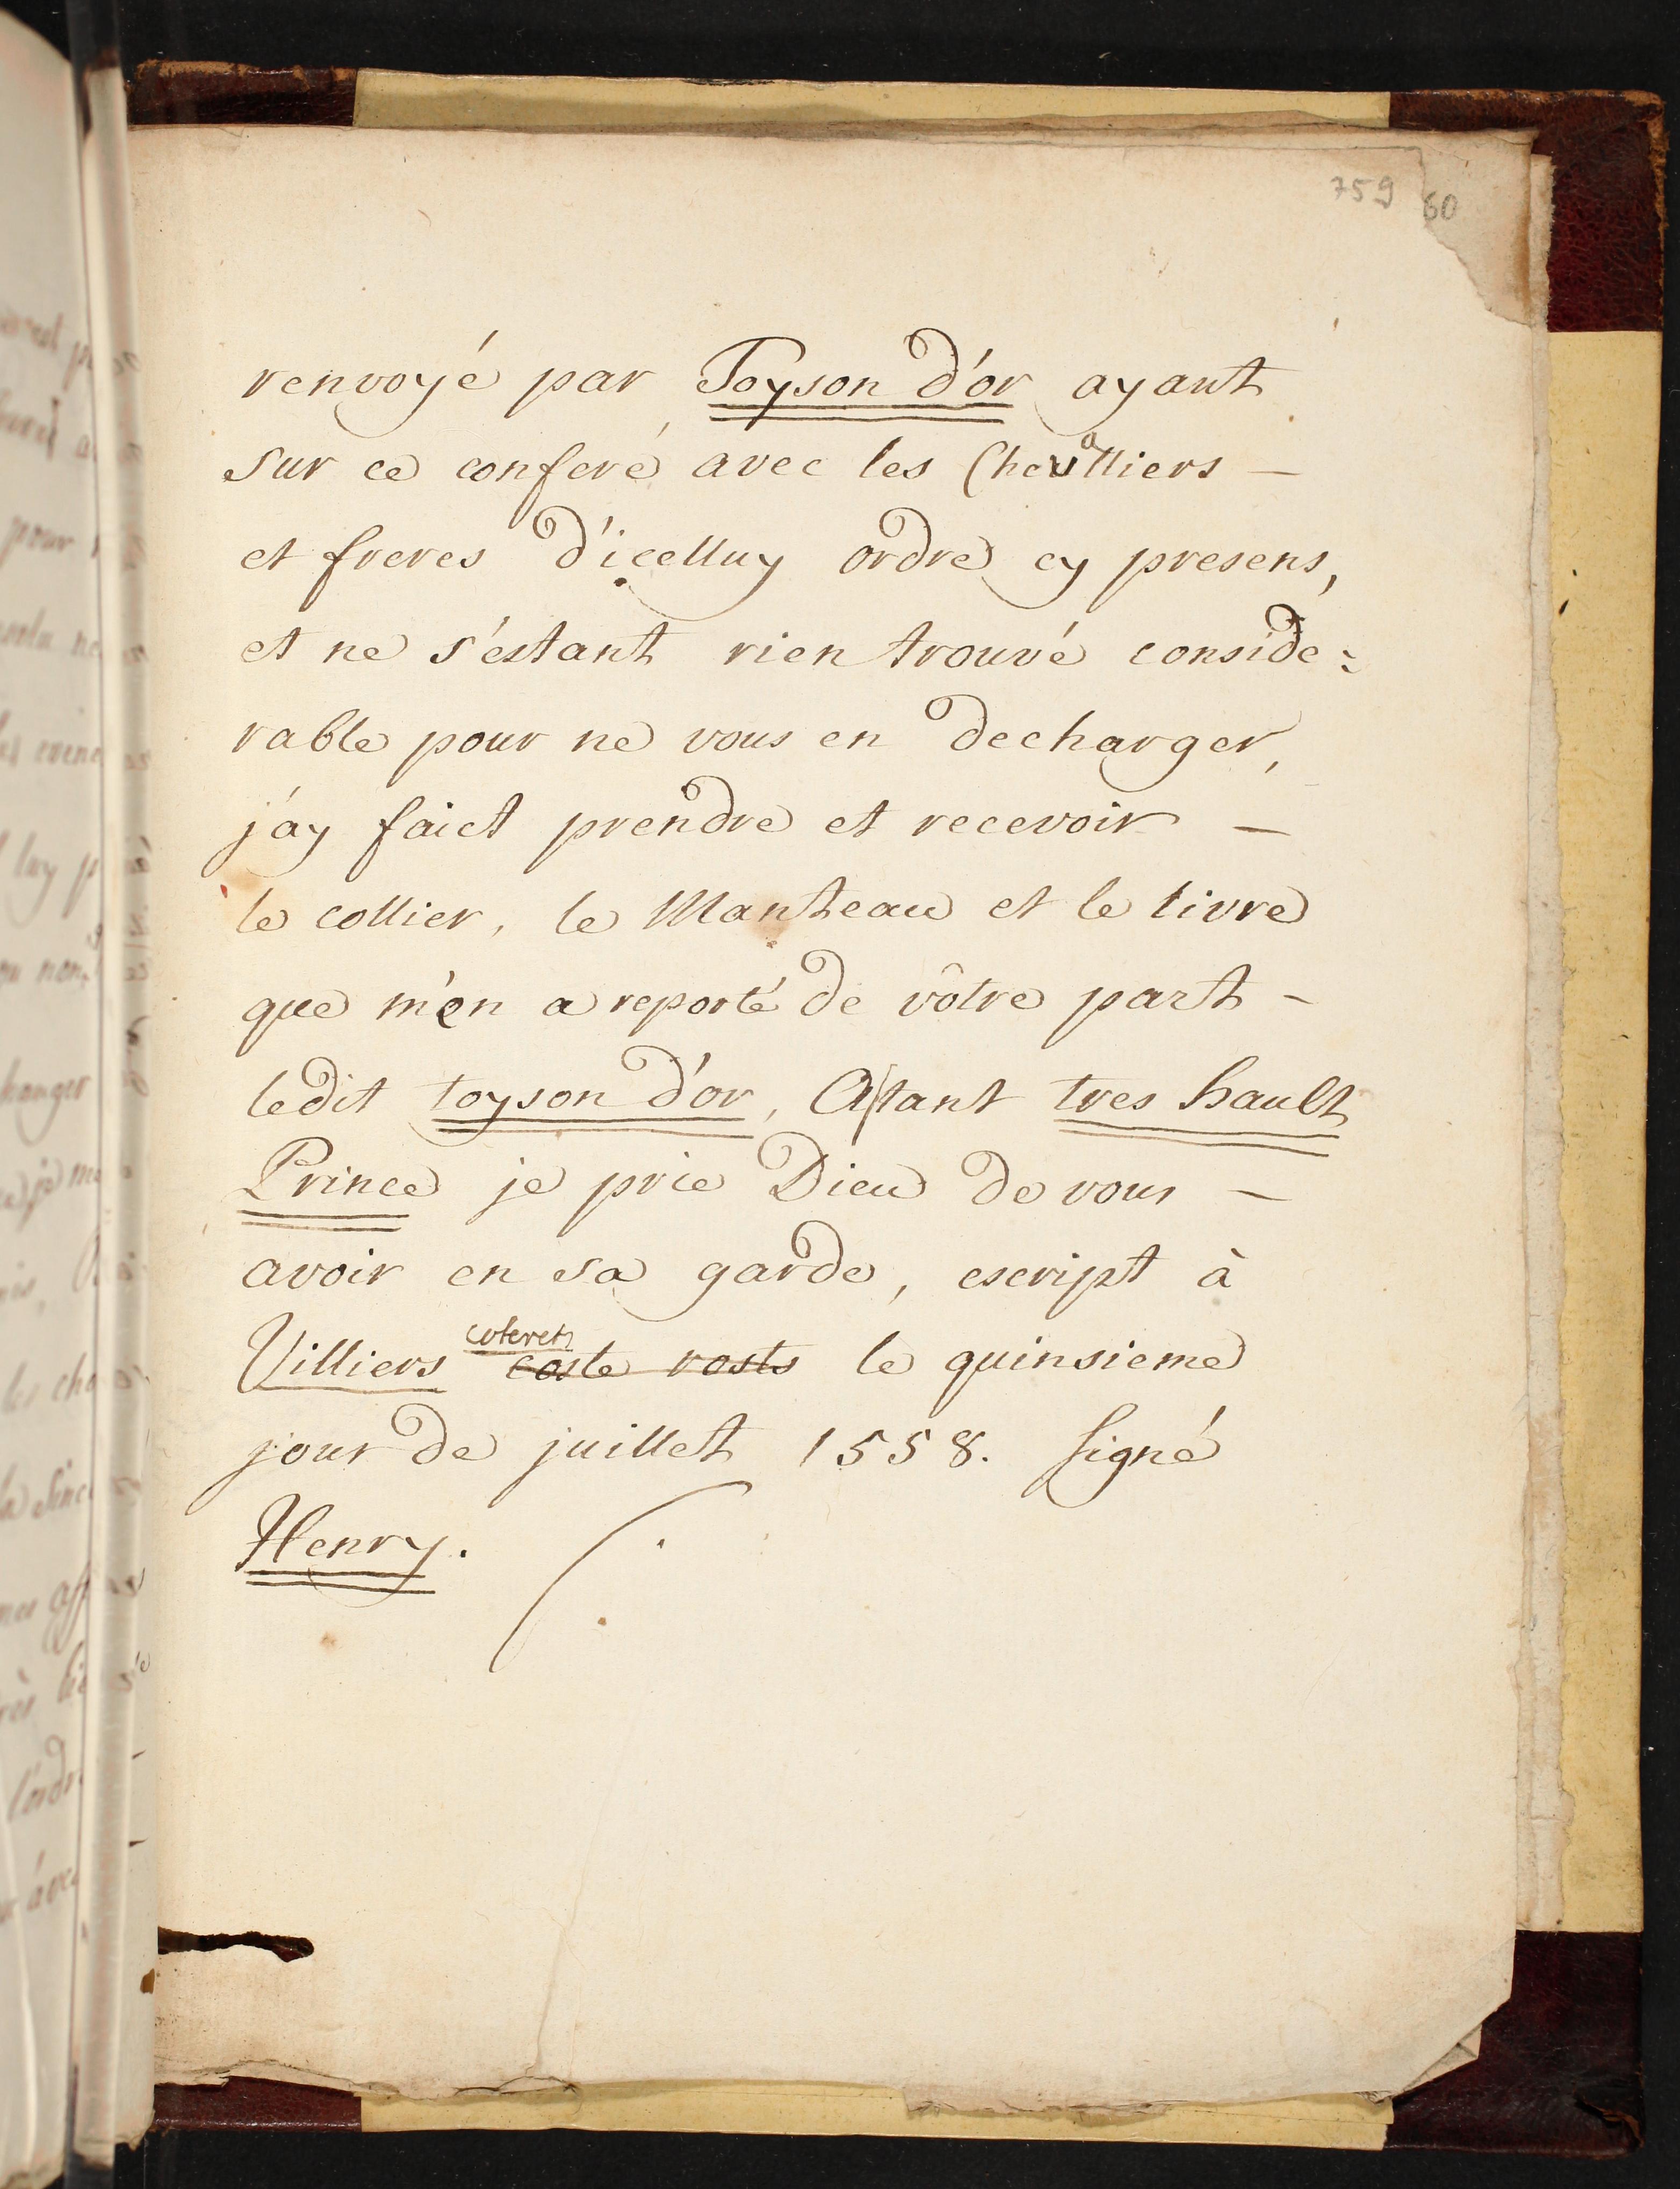 759 60
renvoyé par Toyson d'or ayant
sur ce conferé avec les Chevalliers —
et freres d'icelluy ordre cy presens,
et ne s'estant rien trouvé conside:
rable pour ne vous en decharger,
j'ay faict prendre et recevoir —
le collier, le Manteau et le livre
que m'en a reporté de vôtre part -
ledit toyson d'or, Atant tres hault
Prince je prie Dieu de vous —
avoir en sa garde, escript à
coterets
Villiers coste rosts le quinsieme
jour de juillet 1558. signé
Henry.